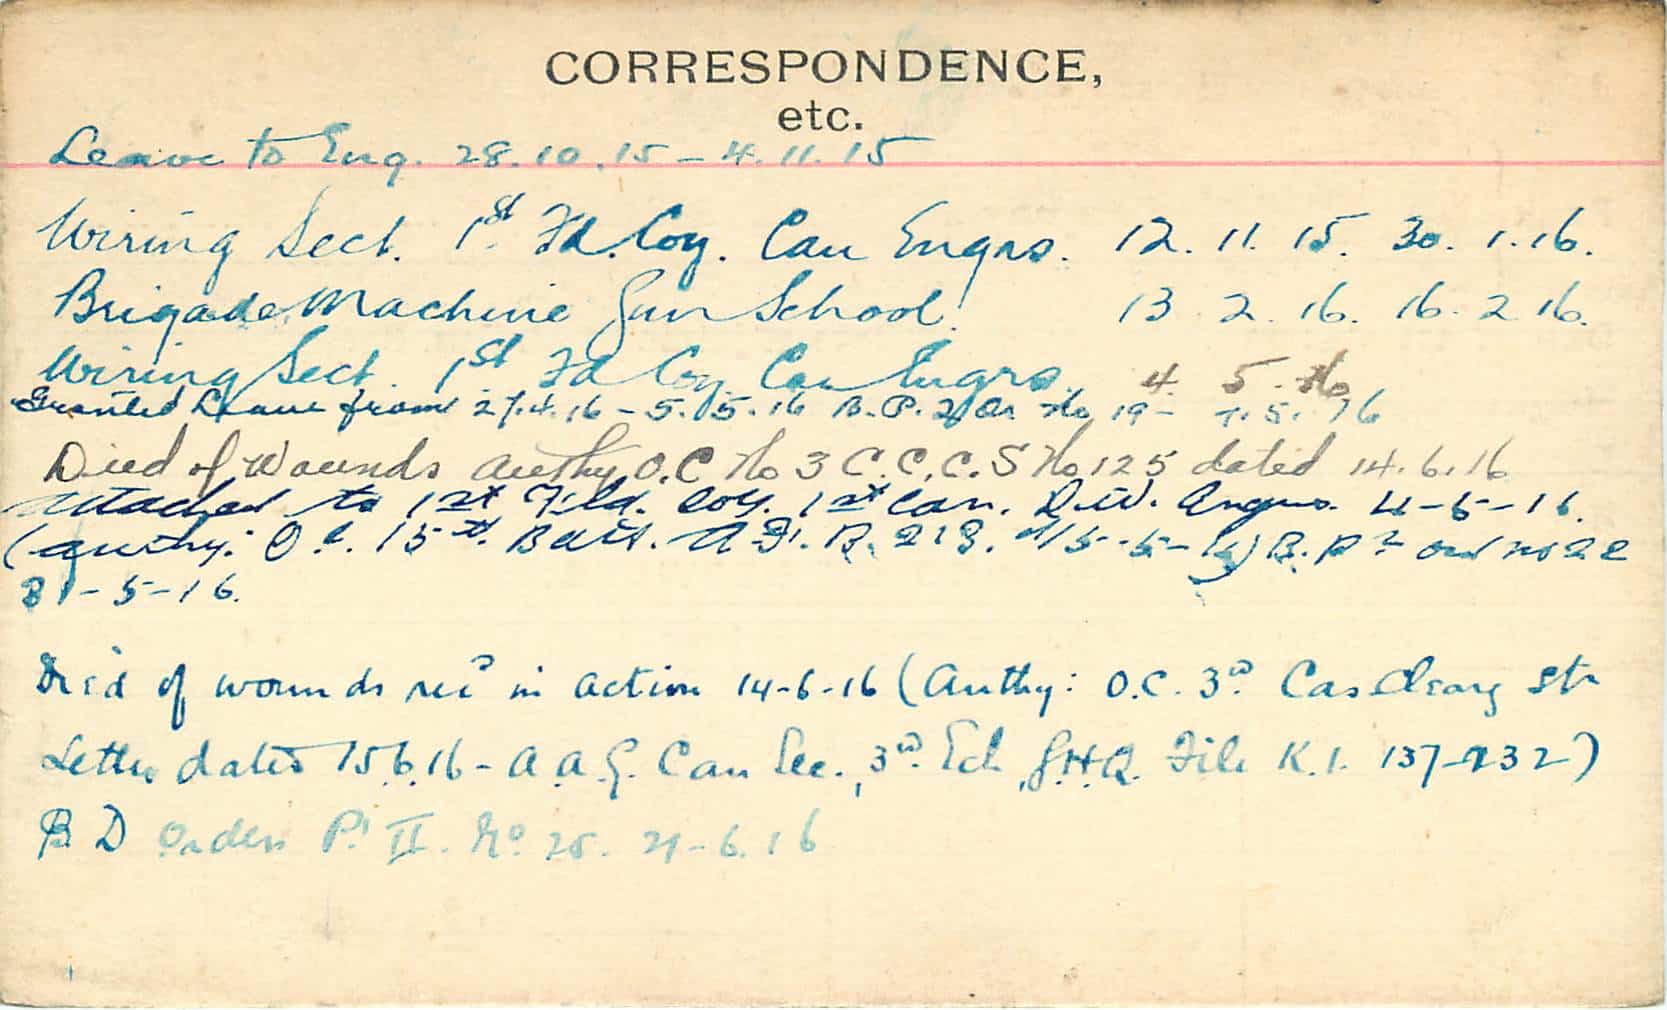 CORRESPONDENCE,
etc.
Leave to Eng. 28.10.15 – 4.11.15
Wiring Sect. 1st Fd. Coy. Can Engrs. 12.11.15. 30.1.16.
Brigade Machine Gun School. 13.2.16. 16.2.16.
Wiring Sect. 1st Fd Coy. Can Engrs. 4.5.16
Granted Leave from 27.4.16 – 5.5.16 B.P.2 Or No 19 – 7.5.16
Died of Wounds Authy O.C No 3 C.C.C.S No 125 dated 14.6.16
Attached to 1st Field. Coy. 1st Can. Div. Engrs. 4-5-16.
(Authy: O.C. 15th Batt. A.F. B. 213. d/15-5-16) B. P 2 Ord No 22
31-5-16.
Died of wounds rec'd in action 14-6-16 (Authy: O.C. 3rd Cas Clearg Stn
Letter dated 15.6.16 – A.A.G. Can Sec. 3rd Ech G.H.Q. File K.1. 137-232)
B D Orders Pt II. No 25. 21-6.16